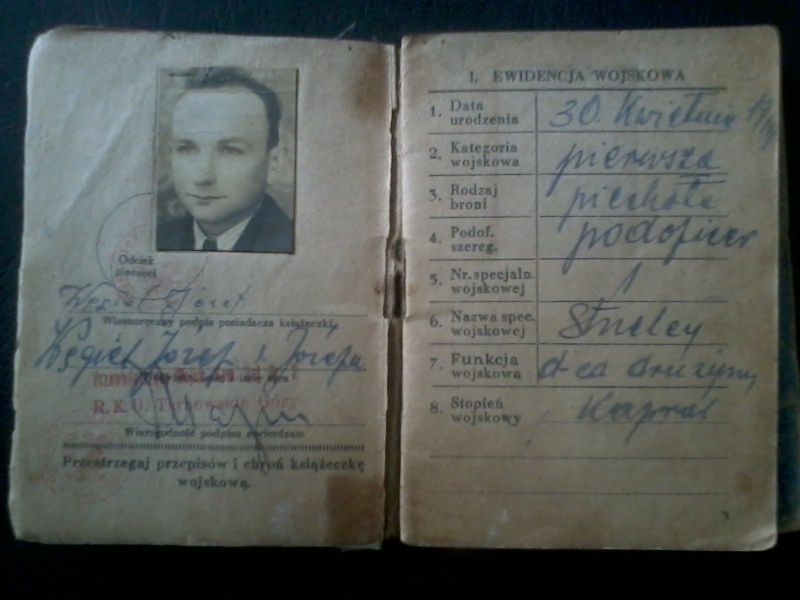 Odcisk
pieczęci
Węgiel Józef
Własnoręczny podpis posiadacza książeczki
Węgiel Józef s. Józefa
R.K.U. Tarnowskie Góry
Wiarogodność podpisu stwierdzam
Przestrzegaj przepisów i chroń książeczkę
wojskową.
I. EWIDENCJA WOJSKOWA
1. Data urodzenia 30. Kwietnia
2. Kategoria wojskowa pierwsza
3. Rodzaj broni piechota
4. Podof. szereg. podoficer
5. Nr. specjaln. wojskowej 1
6. Nazwa spec. wojskowej Strzelcy
7. Funkcja wojskowa d-ca drużyny
8. Stopień wojskowy Kapral
3